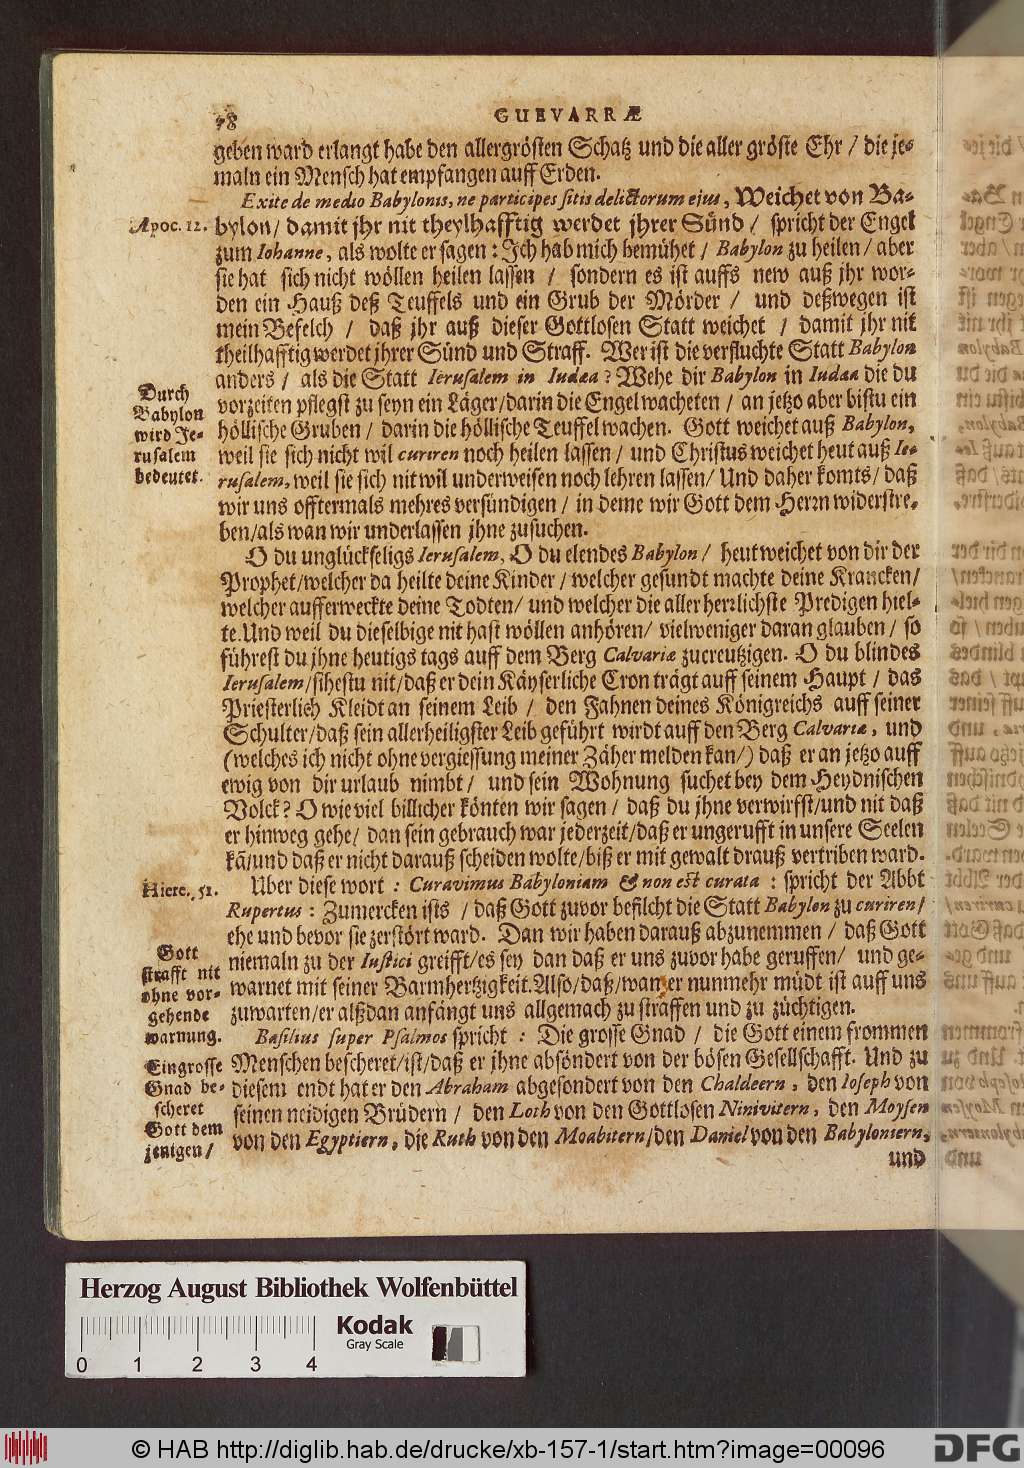 48
GUEVARRÆ
geben ward erlangt habe den allergrösten Schatz und die aller gröste Ehr / die je-
maln ein Mensch hat empfangen auff Erden.
Exite de medio Babylonis, ne participes sitis delictorum ejus, Weichet von Ba-
Apoc. 12.
bylon / damit jhr nit theylhafftig werdet jhrer Sünd / spricht der Engel
zum Iohanne, als wolte er sagen: Ich hab mich bemühet / Babylon zu heilen / aber
sie hat sich nicht wöllen heilen lassen / sondern es ist auffs new auß jhr wor-
den ein Hauß deß Teuffels und ein Grub der Mörder / und deßwegen ist
mein Befelch / daß jhr auß dieser Gottlosen Statt weichet / damit jhr nit
theilhafftig werdet jhrer Sünd und Straff. Wer ist die verfluchte Statt Babylon
anders / als die Statt Ierusalem in Iudæa? Wehe dir Babylon in Iudæa die du
Durch
Babylon
wird Je-
rusalem
bedeutet.
vorzeiten pflegst zu seyn ein Läger / darin die Engel wacheten / an jetzo aber bistu ein
höllische Gruben / darin die höllische Teuffel wachen. Gott weichet auß Babylon,
weil sie sich nicht wil curiren noch heilen lassen / und Christus weichet heut auß Ie-
rusalem, weil sie sich nit wil underweisen noch lehren lassen / Und daher komts / daß
wir uns offtermals mehres versündigen / in deme wir Gott dem Herrn widerstre-
ben / als wan wir underlassen jhne zusuchen.
O du unglückseligs Ierusalem, O du elendes Babylon / heut weichet von dir der
Prophet / welcher da heilte deine Kinder / welcher gesundt machte deine Krancken /
welcher aufferweckte deine Todten / und welcher die aller herrlichste Predigen hiel-
te. Und weil du dieselbige nit hast wöllen anhören / vielweniger daran glauben / so
führest du jhne heutigs tags auff dem Berg Calvariæ zucreutzigen. O du blindes
Ierusalem / sihestu nit / daß er dein Käyserliche Cron trägt auff seinem Haupt / das
Priesterlich Kleidt an seinem Leib / den Fahnen deines Königreichs auff seiner
Schulter / daß sein allerheiligster Leib geführt wirdt auff den Berg Calvariæ, und
(welches ich nicht ohne vergiessung meiner Zäher melden kan /) daß er an jetzo auff
ewig von dir urlaub nimbt / und sein Wohnung suchet bey dem Heydnischen
Volck? O wie viel billicher könten wir sagen / daß du jhne verwirfst / und nit daß
er hinweg gehe / dan sein gebrauch war jederzeit / daß er ungerufft in unsere Seelen
kā / und daß er nicht darauß scheiden wolte / biß er mit gewalt drauß vertriben ward.
Hiere. 51.
Uber diese wort: Curavimus Babyloniam & non est curata: spricht der Abbt
Rupertus: Zumercken ists / daß Gott zuvor befilcht die Statt Babylon zu curiren /
ehe und bevor sie zerstört ward. Dan wir haben darauß abzunemmen / daß Gott
Gott
strafft nit
ohne vor-
gehende
warnung.
niemaln zu der Iustici greifft / es sey dan daß er uns zuvor habe geruffen / und ge-
warnet mit seiner Barmhertzigkeit. Also / daß / wan er nunmehr müdt ist auff uns
zuwarten / er alßdan anfängt uns allgemach zu straffen und zu züchtigen.
Basilius super Psalmos spricht: Die grosse Gnad / die Gott einem frommen
Ein grosse
Gnad be-
scheret
Gott dem
jenigen /
Menschen bescheret / ist / daß er jhne absöndert von der bösen Gesellschafft. Und zu
diesem endt hat er den Abraham abgesondert von den Chaldeern, den Ioseph von
seinen neidigen Brüdern / den Loth von den Gottlosen Ninivitern, den Moysen
von den Egyptiern, die Ruth von den Moabitern / den Daniel von den Babyloniern,
und
Herzog August Bibliothek Wolfenbüttel
Kodak
Gray Scale
0 1 2 3 4
© HAB http://diglib.hab.de/drucke/xb-157-1/start.htm?image=00096
DFG